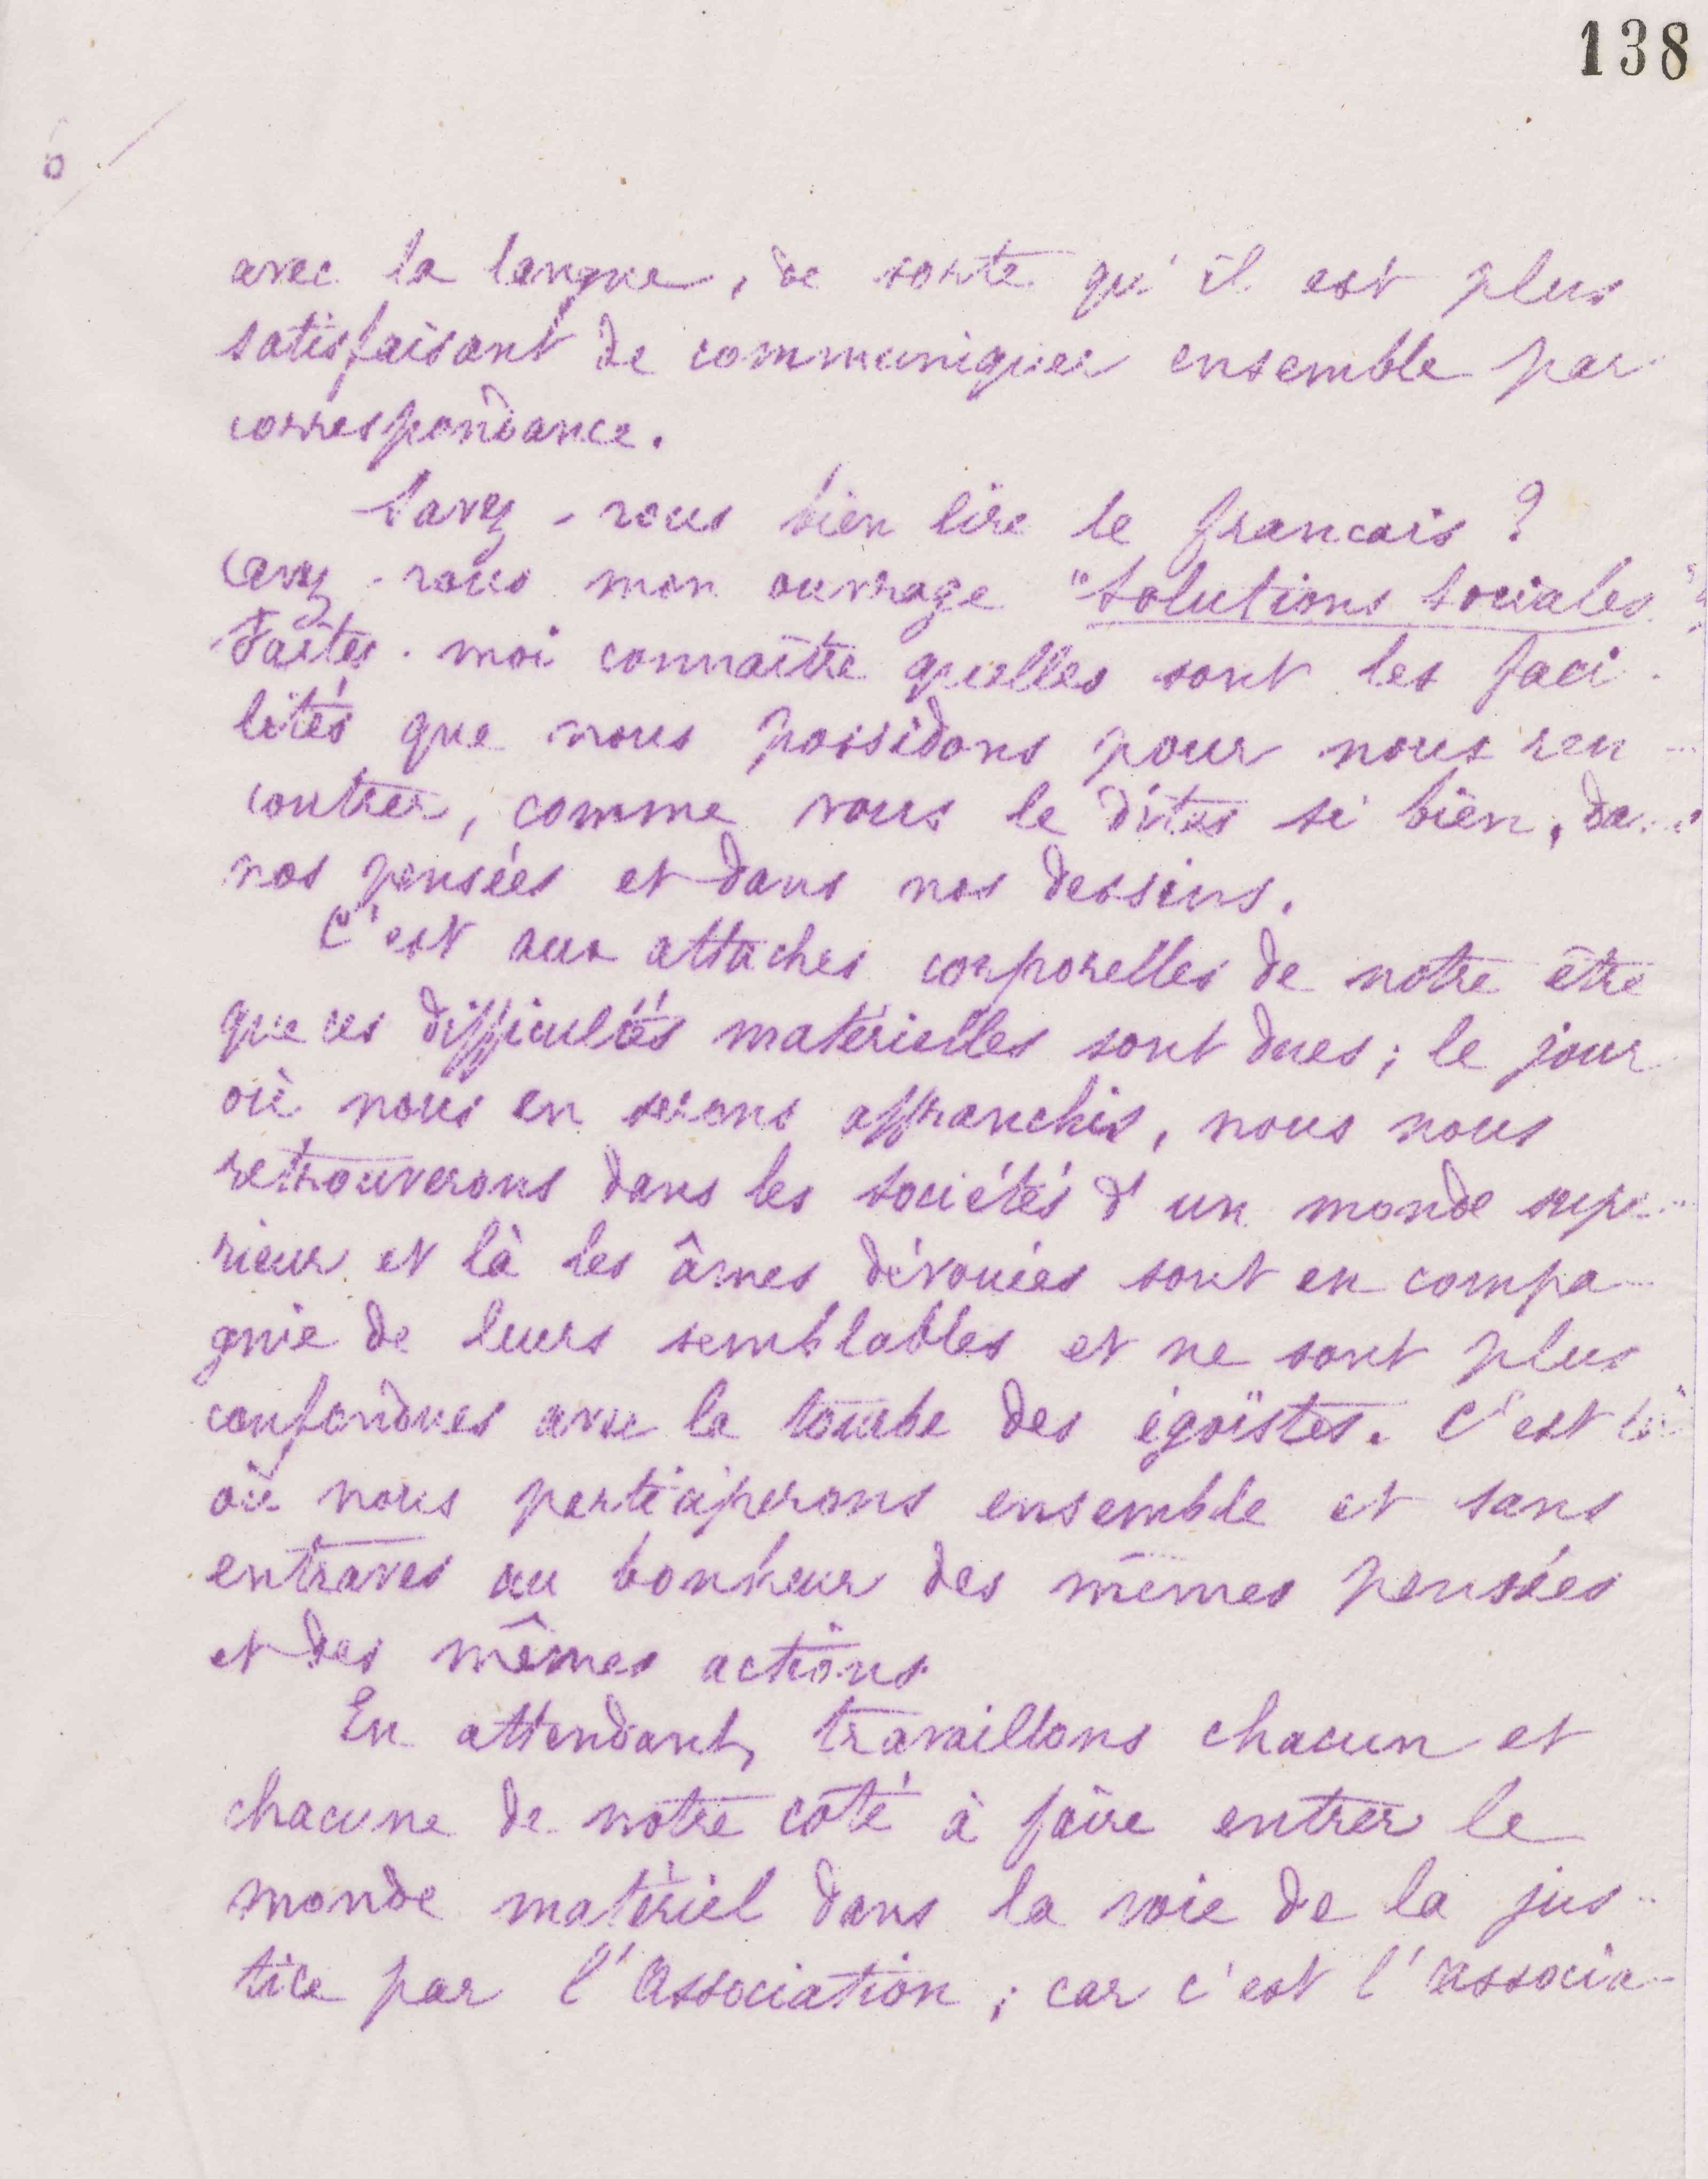 138
6
avec la langue, de sorte qu'il est plus
satisfaisant de communiquer ensemble par
correspondance.
Savez-vous bien lire le francais ?
avez-vous mon ouvrage "Solutions Sociales"
Faites-moi connaître quelles sont les faci-
lités que nous possédons pour nous ren-
contrer, comme vous le dites si bien,
nos pensées et dans nos dessins.
C'est aux attaches corporelles de notre être
que ces difficultés matérielles sont dues; le jour
où nous en serons affranchis, nous nous
retrouverons dans les sociétés d'un monde supé-
rieur et là les âmes dévouées sont en compa-
gnie de leurs semblables et ne sont plus
confondues avec la tourbe des égoïstes. C'est là
où nous participerons ensemble et sans
entraves au bonheur des mêmes pensées
et des mêmes actions.
En attendant, travaillons chacun et
chacune de notre côté à faire entrer le
monde matériel dans la voie de la jus-
tice par l'Association; car c'est l'associa-